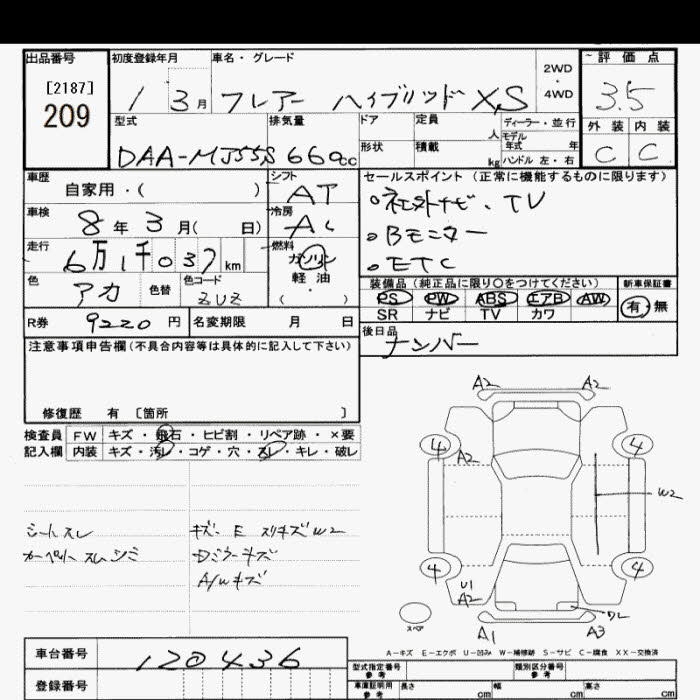 出品番号
[2187]
209
初度登録年月
1 3月
車名・グレード
フレアー ハイブリッド XS
2WD
・
4WD
評価点
3.5
外装 内装
C C
型式
DAA-MJ55S
排気量
660cc
ドア
形状
定員
人
積載
kg
ディーラー・並行
モデル
年式 年
ハンドル 左・右
車歴
自家用・( )
シフト
AT
車検
8年3月( 日)
冷房
AC
走行
6万1千037km
燃料
ガソリン
軽油
・
( )
色
アカ
色替
色コード
ZUZ
R券 9220円
名変期限 月 日
セールスポイント(正常に機能するものに限ります)
○社外ナビ、TV
○Bモニター
○ETC
装備品(純正品に限り○をつけてください)
PS PW ABS エアB AW
SR ナビ TV カワ
新車保証書
有・無
後日品
ナンバー
注意事項申告欄(不具合内容等は具体的に記入して下さい)
修復歴 有 〔箇所 〕
検査員
記入欄
FW キズ・飛石・ヒビ割・リペア跡・×要
内装 キズ・汚レ・コゲ・穴・スレ・キレ・破レ
シートスレ
カーペットスレ シミ
キズ・E スリキズW2
Dミラーキズ
A/Wキズ
A2 A2
4 4
A2
W2
4 4
U1
A2
ワレ
A1 A3
スペア
A-キズ E-エクボ U-凹み W-補修跡 S-サビ C-腐食 XX-交換済
車台番号
120436
登録番号
型式指定番号
参考
類別区分番号
参考
車庫証明用
参考
長さ cm
幅 cm
高さ cm